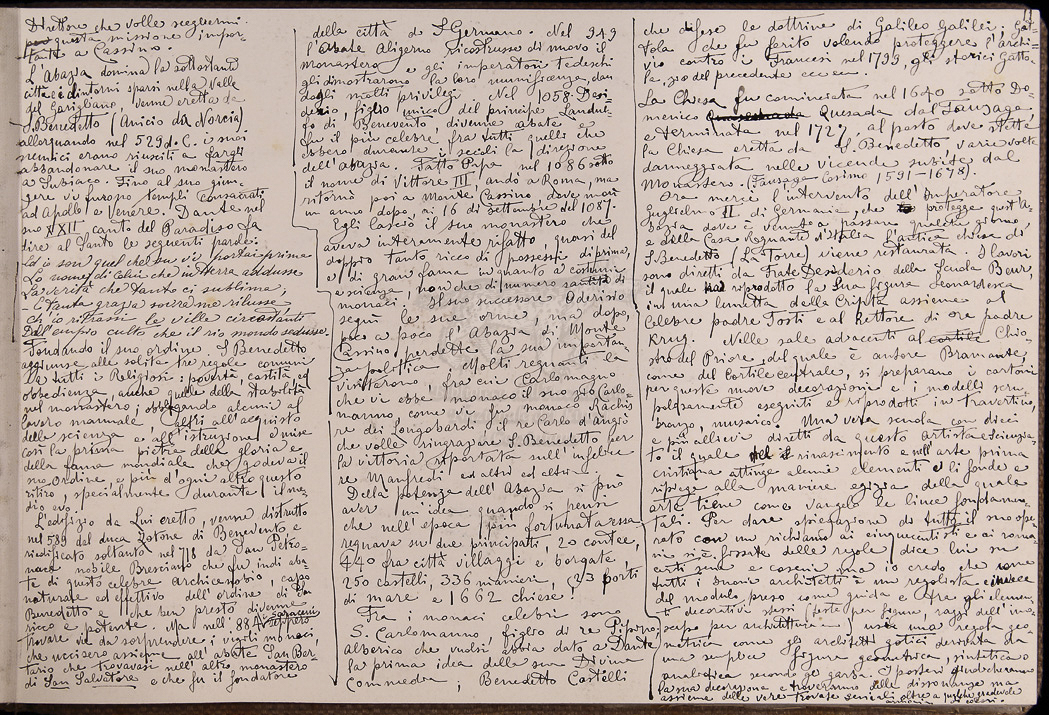 Direttore che volle scegliermi
per questa missione impor-
tante a Cassino.
L'Abazia domina la sottostante
città e i dintorni sparsi nella Valle
del Garigliano, venne eretta da
S. Benedetto (Anicio di Norcia)
allorquando nel 529 d. C. i suoi
nemici erano riusciti a fargli
abbandonare il suo monastero
a Subiaco. Fino al suo giun-
gere vi furono templi consacrati
ad Apollo e Venere. Dante nel
suo XXII canto del Paradiso fa
dire al Santo le seguenti parole:
Ed io son quel che su vi portai prima
Lo nome di Colui che in terra addusse
La verità che tanto ci sublima;
E tanta grazia sovra me rilusse
Ch'io ritrassi le ville circostanti
Dall'empio culto che il rio mondo sedusse.
Fondando il suo ordine, S. Benedetto
aggiunse alle solite tre regole comuni
da tutti i Religiosi: povertà, castità ed
obbedienza, anche quella della stabilità
nel monastero; obbligando alcuni al
lavoro manuale, altri all'acquisto
della scienza e all'istruzione e mise
così la prima pietra della gloria e
della fama mondiale che godeva il
suo Ordine, e più d'ogni altro questo
ritiro, specialmente durante il me-
dio evo.
L'edifizio da Lui eretto, venne distrutto
nel 589 dal duca Zotone di Benevento e
riedificato soltanto nel 718 da San Petro-
nace nobile Bresciano che fu indi aba-
te di questo celebre archicenobio, capo
naturale ed effettivo dell'ordine di San
Benedetto e che ben presto divenne
ricco e potente. Ma nell' 884 i saraceni
seppero
trovare via da sorprendere i vigili monaci
che uccisero assieme all'abate San Ber-
tario che trovavasi nell'altro monastero
di San Salvatore e che fu il fondatore
della città di S. Germano. Nel 949
l'Abate Aligerno ricostrusse di nuovo il
monastero e gli imperatori tedeschi
gli dimostrarono la loro munificenza, dan-
dogli molti privilegi. Nel 1058 Desi-
derio, figlio unico del principe Landul-
fo di Benevento, divenne abate e
fu il più celebre, fra tutti quelli che
ebbero durante i secoli la direzione
dell'abazia. Fatto Papa nel 1086 sotto
il nome di Vittore III, andò a Roma, ma
ritornò poi a Monte Cassino, dove morì
un anno dopo, ai 16 di settembre del 1087.
Egli lasciò il suo monastero che
aveva interamente rifatto, quasi del
doppio tanto ricco di possessi di prima,
e di gran fama in quanto a costumi
e scienza, nonchè di numero santità di
monaci. Il suo successore Oderisio
seguì le sue orme, ma dopo,
poco a poco l'abazia di Monte
Cassino, perdette la sua importan-
za politica. Molti regnanti la
visitarono, fra cui Carlomagno
che vi ebbe monaco il suo zio Carlo-
manno, come vi fu monaco Rachis
re dei Longobardi il re Carlo d'Angiò
che volle ringraziare S. Benedetto per
la vittoria riportata sull'infelice
re Manfredi ed altri ed altri.
Della potenza dell'Abazia si può
aver un'idea quando si pensi
che nell'epoca più fortunata essa
regnava su due principati, 20 contee,
440 fra città villaggi e borgate,
250 castelli, 336 manieri, 23 porti
di mare e 1662 chiese!
Fra i monaci celebri sono
S. Carlomanno figlio di re Pipino;
Alberico che vuolsi abbia dato a Dante
la prima idea della sua Divina
Commedia; Benedetto Castelli
che difese le dottrine di Galileo Galilei; Gat-
tola che fu ferito volendo proteggere l'archi-
vio contro i Francesi nel 1799, gli storici Gatto-
la, zio del precedente ecc ecc.
La Chiesa fu cominciata nel 1640 sotto Do-
menico Quesada dal Fansaga
e terminata nel 1727, al posto dove stette
la Chiesa eretta da S. Benedetto, varie volte
danneggiata nelle vicende subite dal
Monastero. (Fansaga Cosimo 1591-1678).
Ora mercè l'intervento dell'Imperatore
Guglielmo II di Germania, che protegge quest'A-
bazia dove è venuto a passare qualche giorno
e della Casa Regnante d'Italia l'antica chiesa di
S. Benedetto (La Torre) viene restaurata. I lavori
sono diretti da Frate Desiderio della Scuola Beur.
il quale ha riprodotto la sua figura Leonardesca
in una lunetta della Cripta assieme al
celebre padre Tosti e al Rettore di ora padre
Krug. Nelle sale adiacenti al cortile Chio-
stro del Priore, del quale è autore Bramante,
come del Cortile centrale, si preparano i cartoni
per queste nuove decorazioni e i modelli scru-
polosamente eseguiti e riprodotti in travertino,
bronzo, musaico. Una vera scuola con dieci
e più allievi diretti da questo artista e scienzia-
to il quale del rinascimento e nell'arte prima
cristiana attinge alcuni elementi e li fonde e
ripiega alla maniera egizia della quale
arte tiene come vangelo le linee fondamen-
tali. Per dare spiegazione di tutto il suo ope-
rato con un richiamo ai cinquecentisti e ai roma-
ni si è forgiato delle regole, dice lui su
certi sensi e così via ma io credo che come
tutti i buoni architetti è un regolista e invece
del modulo preso come guida e fra gli elemen-
ti decorativi stessi (testa per figure, raggi dell'imo-
scapo per architettura) usa una regola geo-
metrica come gli architetti gotici derivata da
una semplice figura geometrica, sintetica o
analitica secondo gl garba. I posteri giudicheranno
la sua decorazione e troveranno delle dissonanze ma
assieme delle vere trovate seriali oltre a qualche gradevole
armonia di colori.